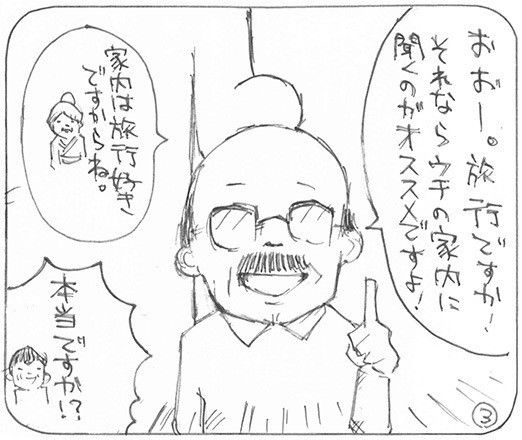 おおー。旅行ですか！
それならウチの家内に
聞くのがオススメですよ！
家内は旅行好き
ですからね。
本当ですか!?
3